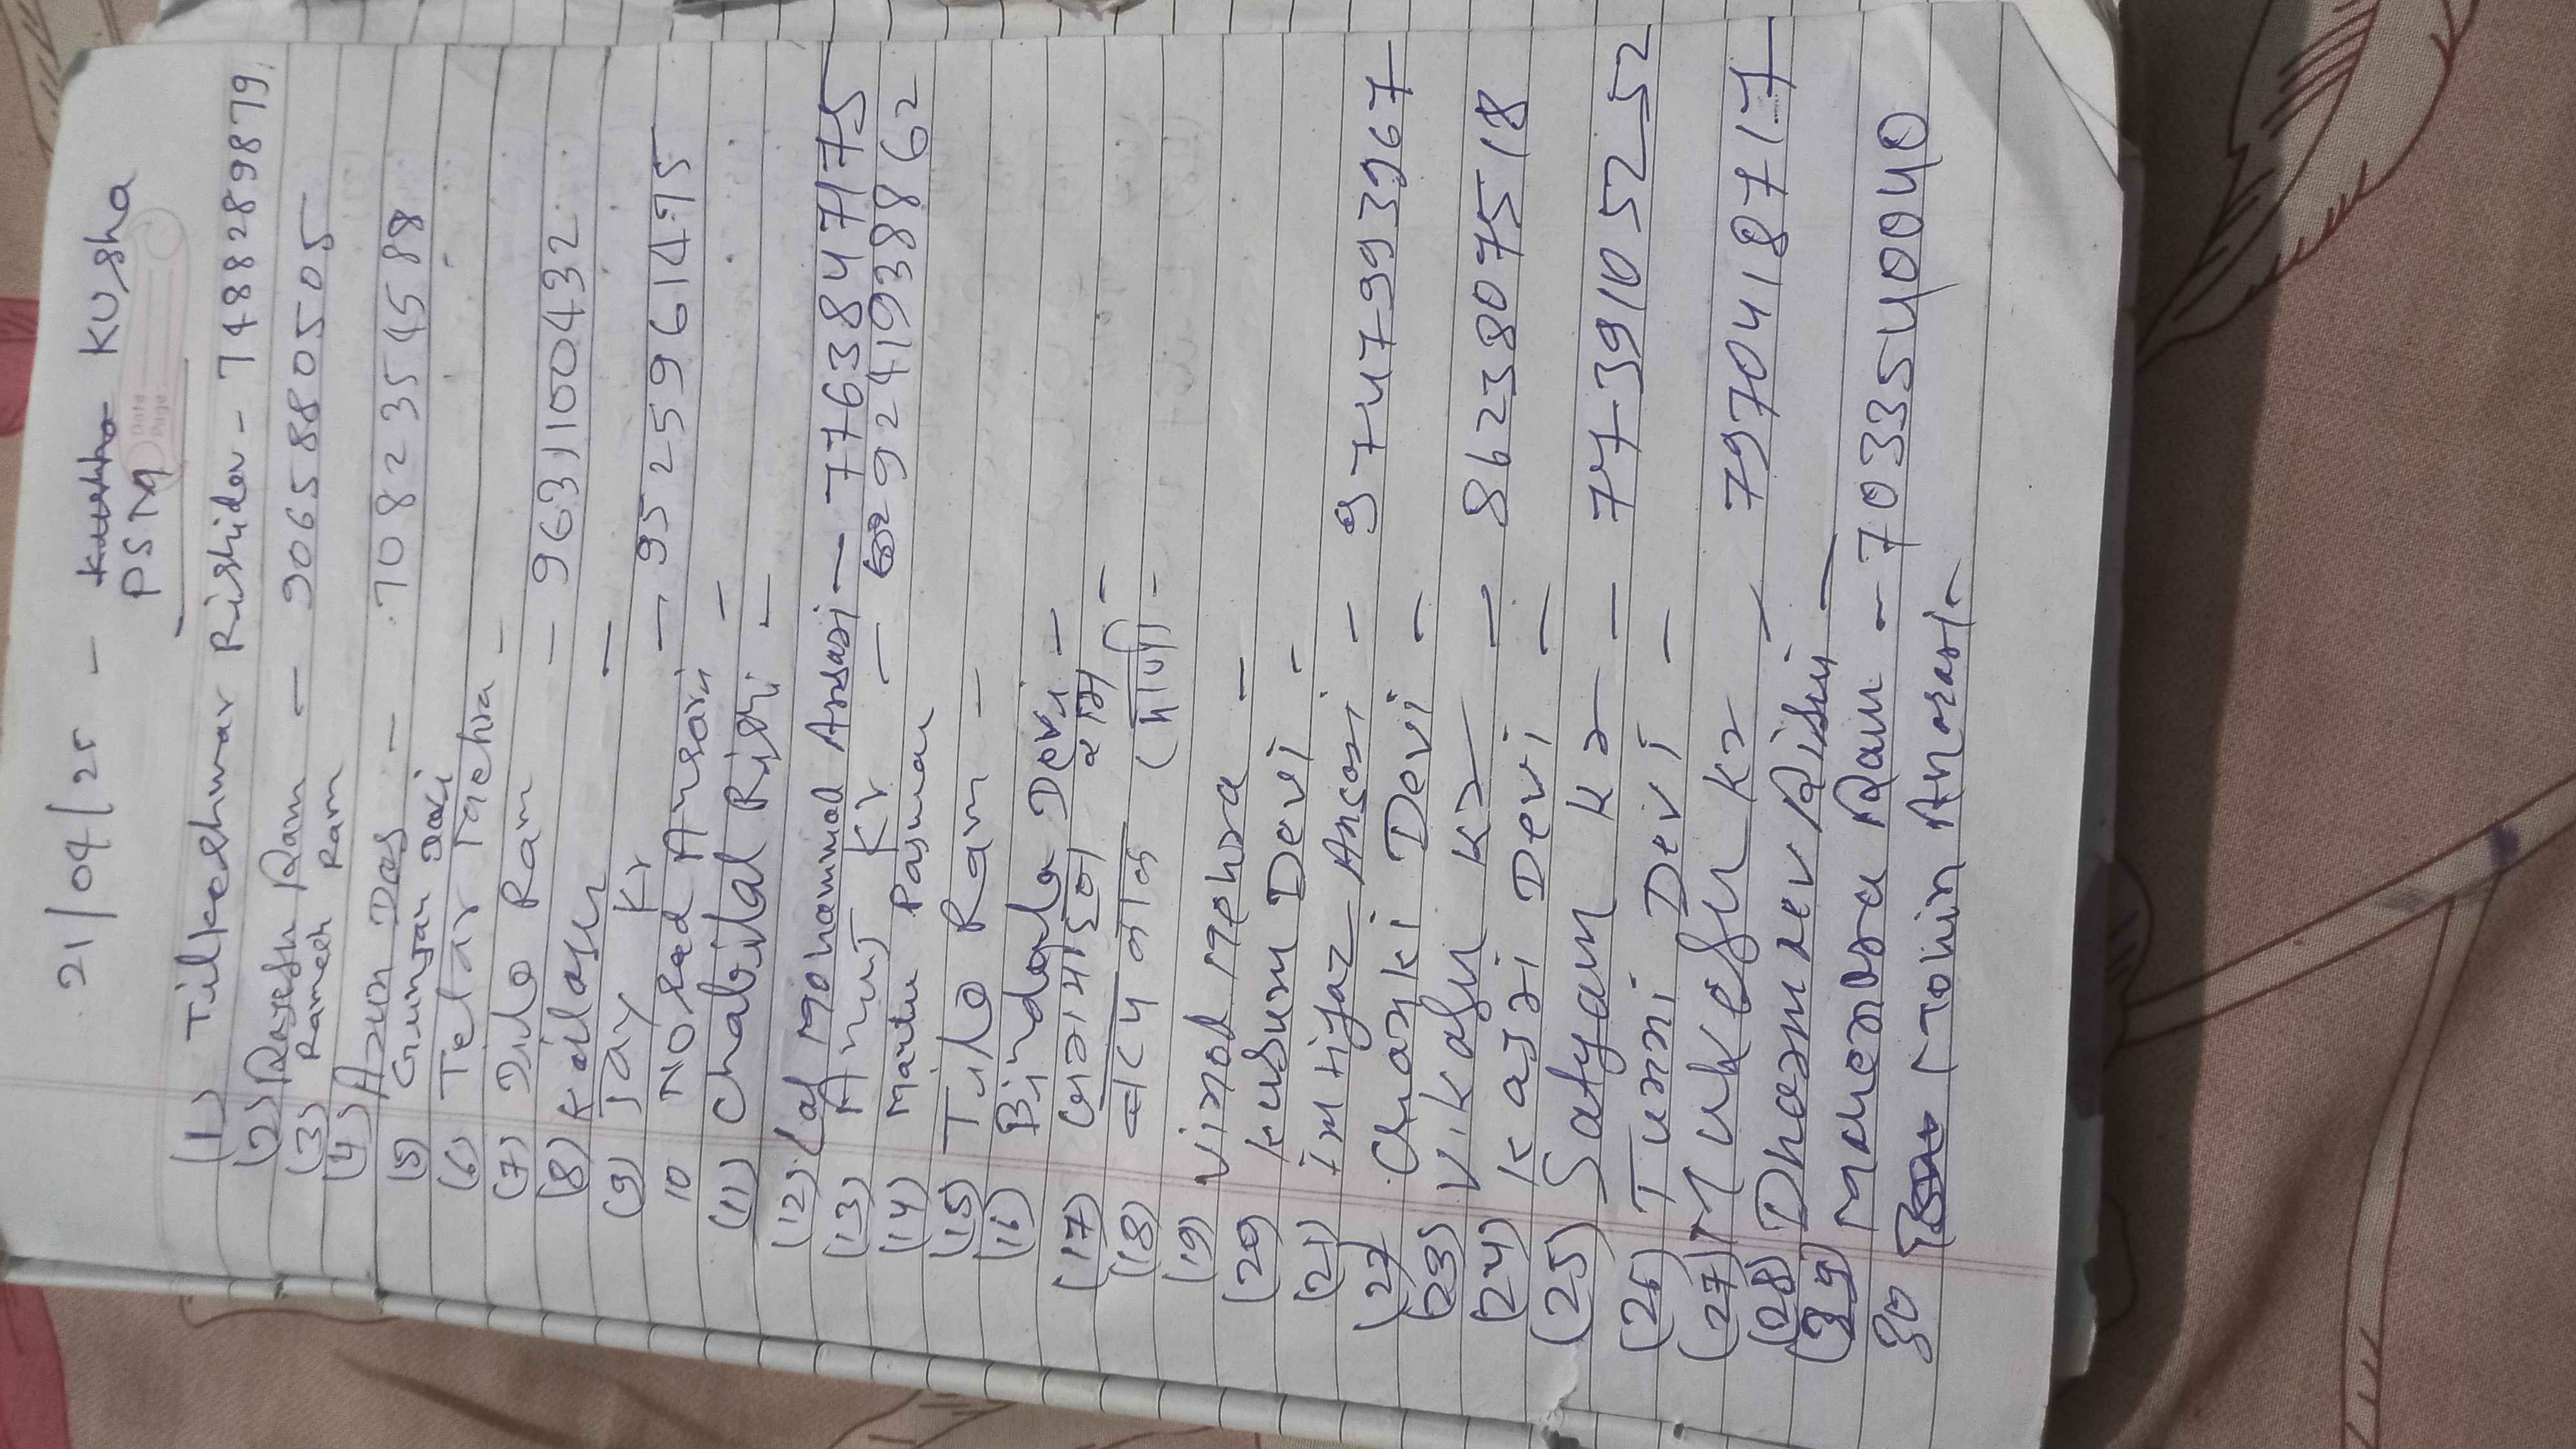 21/04/25 - KUsha
PSM
Date
Page
(1) Tilkeshwar Rishidev - 7488289879
(2) Rajesh Ram — 9065880505
(3) Ramesh Ram
(4) Arun Das - 7082354588
(5) Gunjan Devi
(6) Telar -
(7) Dilo Ram — 9631100432
(8) Kailash —
(9) Jay Kr — 9525961495
10 Nosad Ansari -
(11) Chabilal Rishi -
(12) Lal Mohammad Ansari — 7763847175
(13) Anuj Kr — 9241938862
(14) Paswan
(15) Tilo Ram -
(16) Devi -
(17) राम -
(18) -
(19) Vinod Mehra -
(20) Kusum Devi -
(21) Imtiyaz Ansari - 9747993967
(22) Chanki Devi -
(23) Vikash Kr — 8623807518
(24) Kajri Devi —
(25) Satyam Kr — 7739105252
(26) Tunni Devi -
(27) Mukesh Kr - 7970418717
(28) Dharmdev Rishi —
(29) Mahendra Ram - 7033540040
30 Tohir Ansari -